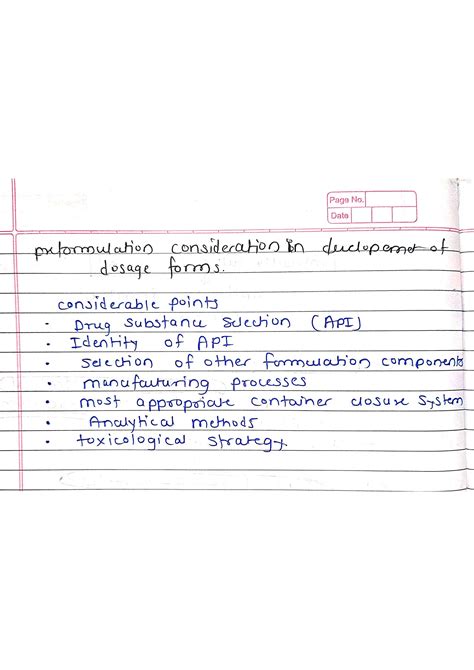 Page No.
Date
preformulation consideration in development of
dosage forms.
considerable points
• Drug substance selection (API)
• Identity of API
• selection of other formulation components
• manufacturing processes
• most appropriate container closure system
• Analytical methods
• toxicological strategy